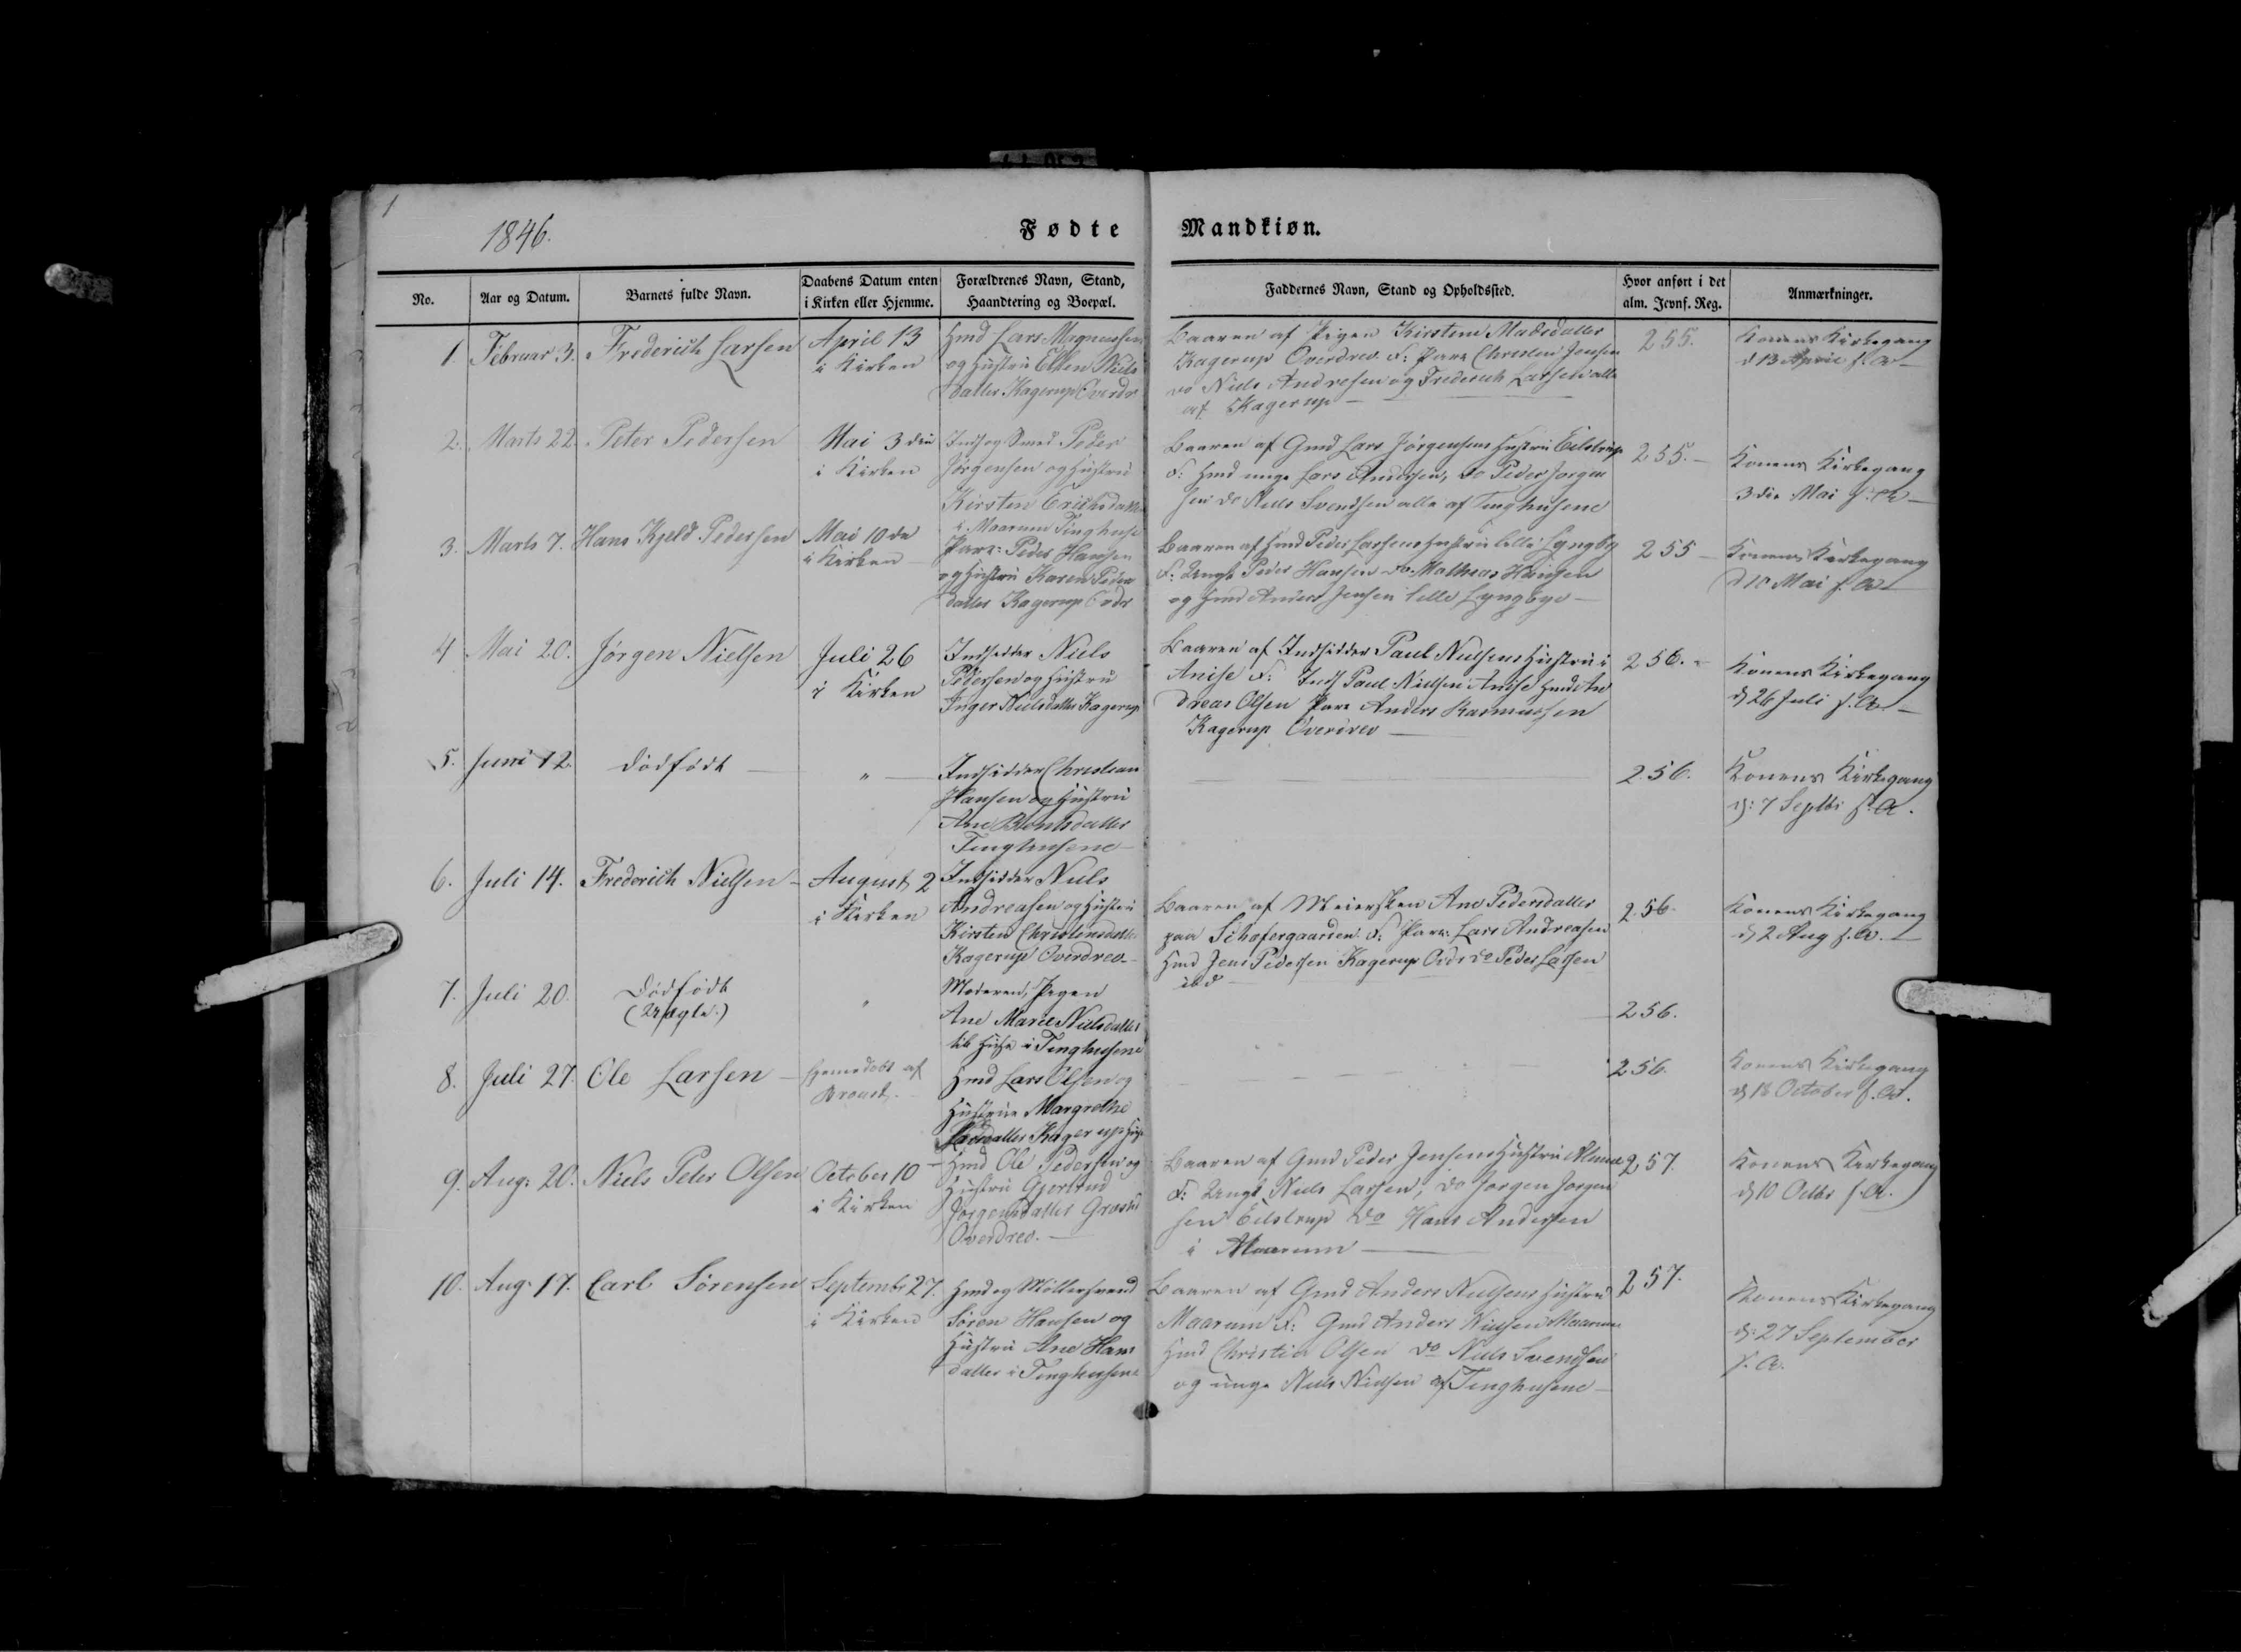 1
1846.
Fødte Mandkiøn.
No.
Aar og Datum.
Barnets fulde Navn.
Daabens Datum enten
i Kirken eller Hjemme.
Forældrenes Navn, Stand,
Haandtering og Boepæl.
Faddernes Navn, Stand og Opholdssted.
Hvor anført i det
alm. Jevnf. Reg.
Anmærkninger.
1. Februar 3. Frederich Larsen
April 13
i Kirken
Hmd Lars Magnussen
og Hustru Ellen Niels
datter Kagerup Overdr
Baaren af Pigen Kirstine Madsdatter
Kagerup Overdrev. F: Parc Christen Jensen
do Niels Andresen og Frederich Larsen alle
af Kagerup
255.
Konens Kirkegang
d 13 April s. A
2. Marts 22. Peter Pedersen
Mai 3die
i Kirken
Inds og Smed Peder
Jörgensen og Hustru
Kirsten Erichsdatter
i Maarum Tinghuse
Baaren af Gmd Lars Jörgensens Hustru Eilstrup
F: Hmd unge Lars Andersen, do Peder Jorgen
sen do Niels Svendsen alle af Tinghusene
255.
Konens Kirkegang
3die Mai s. A
3. Marts 7. Hans Kjeld Pedersen
Mai 10de
i Kirken
Parc: Peder Hansen
og Hustru Karen Peders
datter Kagerup Ovdr
Baaren af Hmd Peder Larsens Hustru lille Lyngby
F: Ungk Peder Hansen do Mathias Hansen
og Hmd Anders Jensen lille Lyngbye
255
Konens Kirkegang
d 10 Mai s. A
4 Mai 20. Jörgen Nielsen
Juli 26
i Kirken
Indsidder Niels
Pedersen og Hustru
Inger Nielsdatter Kagerup
Baaren af Indsidder Paul Nielsens Hustru i
Anise F: Inds Paul Nielsen Anise Hmd An
dreas Olsen Parc Anders Rasmussen
Kagerup Overdrev
256.
Konens Kirkegang
d 26 Juli s. A
5. Juni 12. dödfödt
"
Indsidder Christian
Hansen og Hustru
Ane Bentsdatter
Tinghusene
256.
Konens Kirkegang
d: 7 Septbr s. A.
6. Juli 14. Frederich Nielsen
August 2
i Kirken
Indsidder Niels
Andreasen og Hustru
Kirsten Christensdatter
Kagerup Overdrev
Baaren af Meiersken Ane Pedersdatter
paa Schafergaarden. F: Parc: Lars Andreasen
Hmd Jens Pedersen Kagerup Ovdr do Peder Larsen
ibd
256.
Konens Kirkegang
d 2 Aug s. A.
7. Juli 20. Dödfödt
(Uægte.)
"
Moderen, Pigen
Ane Marie Nielsdatter
til Huse i Tinghusene
256.
8. Juli 27. Ole Larsen
Hjemmedöbt af
Hmd Lars Olsen og
Hustrue Margrethe
Larsdatter Kagerup
256.
Konens Kirkegang
d 18 October s. A.
9. Aug: 20. Niels Peter Olsen
October 10
i Kirken
Hmd Ole Pedersen og
Hustru Gjertrud
Jörgensdatter Græsted
Overdrev.
Baaren af Gmd Peder Jensens Hustru
F: Ungk Niels Larsen, do Jorgen Jorgen
sen Eilstrup do Hans Andersen
i Maarum
257.
Konens Kirkegang
d 10 Octbr s. A.
10. Aug. 17. Carl Sörensen
Septembr 27.
i Kirken
Hmd og Möllersvend
Sören Hansen og
Hustru Ane Hans
datter i Tinghusene
Baaren af Gmd Anders Nielsens Hustru
Maarum F: Gmd Anders Nielsen Maarum
Hmd Christian Olsen do Niels Svendsen
og unge Niels Nielsen af Tinghusene
257.
Konens Kirkegang
d: 27 September
s. A.